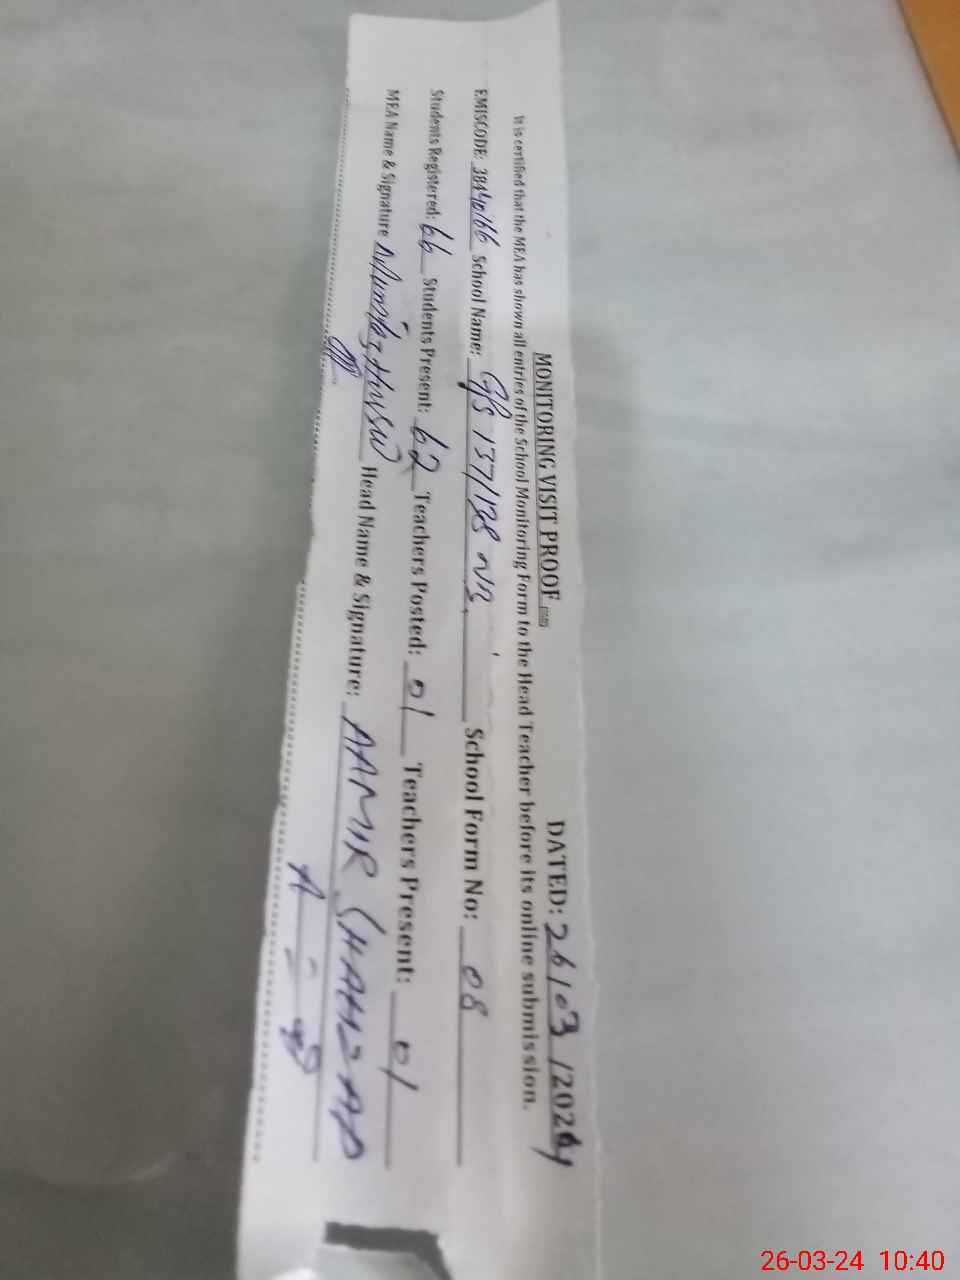 MONITORING VISIT PROOF DATED: 26/03/2024
It is certified that the MEA has shown all entries of the School Monitoring Form to the Head Teacher before its online submission.
EMISCODE: 38440166 School Name: GPS 137/138 NB. School Form No: 08
Students Registered: 66 Students Present: 62 Teachers Posted: 01 Teachers Present: 01
MEA Name & Signature Head Name & Signature: AAMIR SHAHZAD
26-03-24 10:40